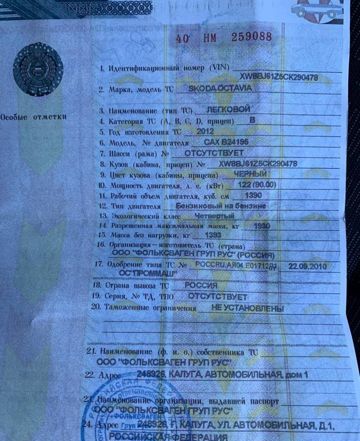 40 НМ 259088
1. Идентификационный номер (VIN)
XW8BJ61Z5CK290478
2. Марка, модель ТС SKODA OCTAVIA
3. Наименование (тип ТС) ЛЕГКОВОЙ
Особые отметки
4. Категория ТС (А, В, С, D, прицеп) В
5. Год изготовления ТС 2012
6. Модель, № двигателя CAX B24195
7. Шасси (рама) № ОТСУТСТВУЕТ
8. Кузов (кабина, прицеп) № XW8BJ61Z5CK290478
9. Цвет кузова (кабины, прицепа) ЧЕРНЫЙ
10. Мощность двигателя, л. с. (кВт) 122 (90.00)
11. Рабочий объем двигателя, куб. см 1390
12. Тип двигателя Бензиновый на бензине
13. Экологический класс Четвертый
14. Разрешенная максимальная масса, кг 1930
15. Масса без нагрузки, кг 1393
16. Организация – изготовитель ТС (страна)
ООО "ФОЛЬКСВАГЕН ГРУП РУС" (РОССИЯ)
17. Одобрение типа ТС № 22.09.2010
ОС "ПРОММАШ"
18. Страна вывоза ТС РОССИЯ
19. Серия, № ТД, ТПО ОТСУТСТВУЕТ
20. Таможенные ограничения НЕ УСТАНОВЛЕНЫ
21. Наименование (ф. и. о.) собственника ТС
ООО "ФОЛЬКСВАГЕН ГРУП РУС"
22. Адрес 248926, КАЛУГА, АВТОМОБИЛЬНАЯ, дом 1
23. Наименование организации, выдавшей паспорт
ООО "ФОЛЬКСВАГЕН ГРУП РУС"
24. Адрес 248926, Г. КАЛУГА, УЛ. АВТОМОБИЛЬНАЯ, Д.1,
РОССИЙСКАЯ ФЕДЕРАЦИЯ